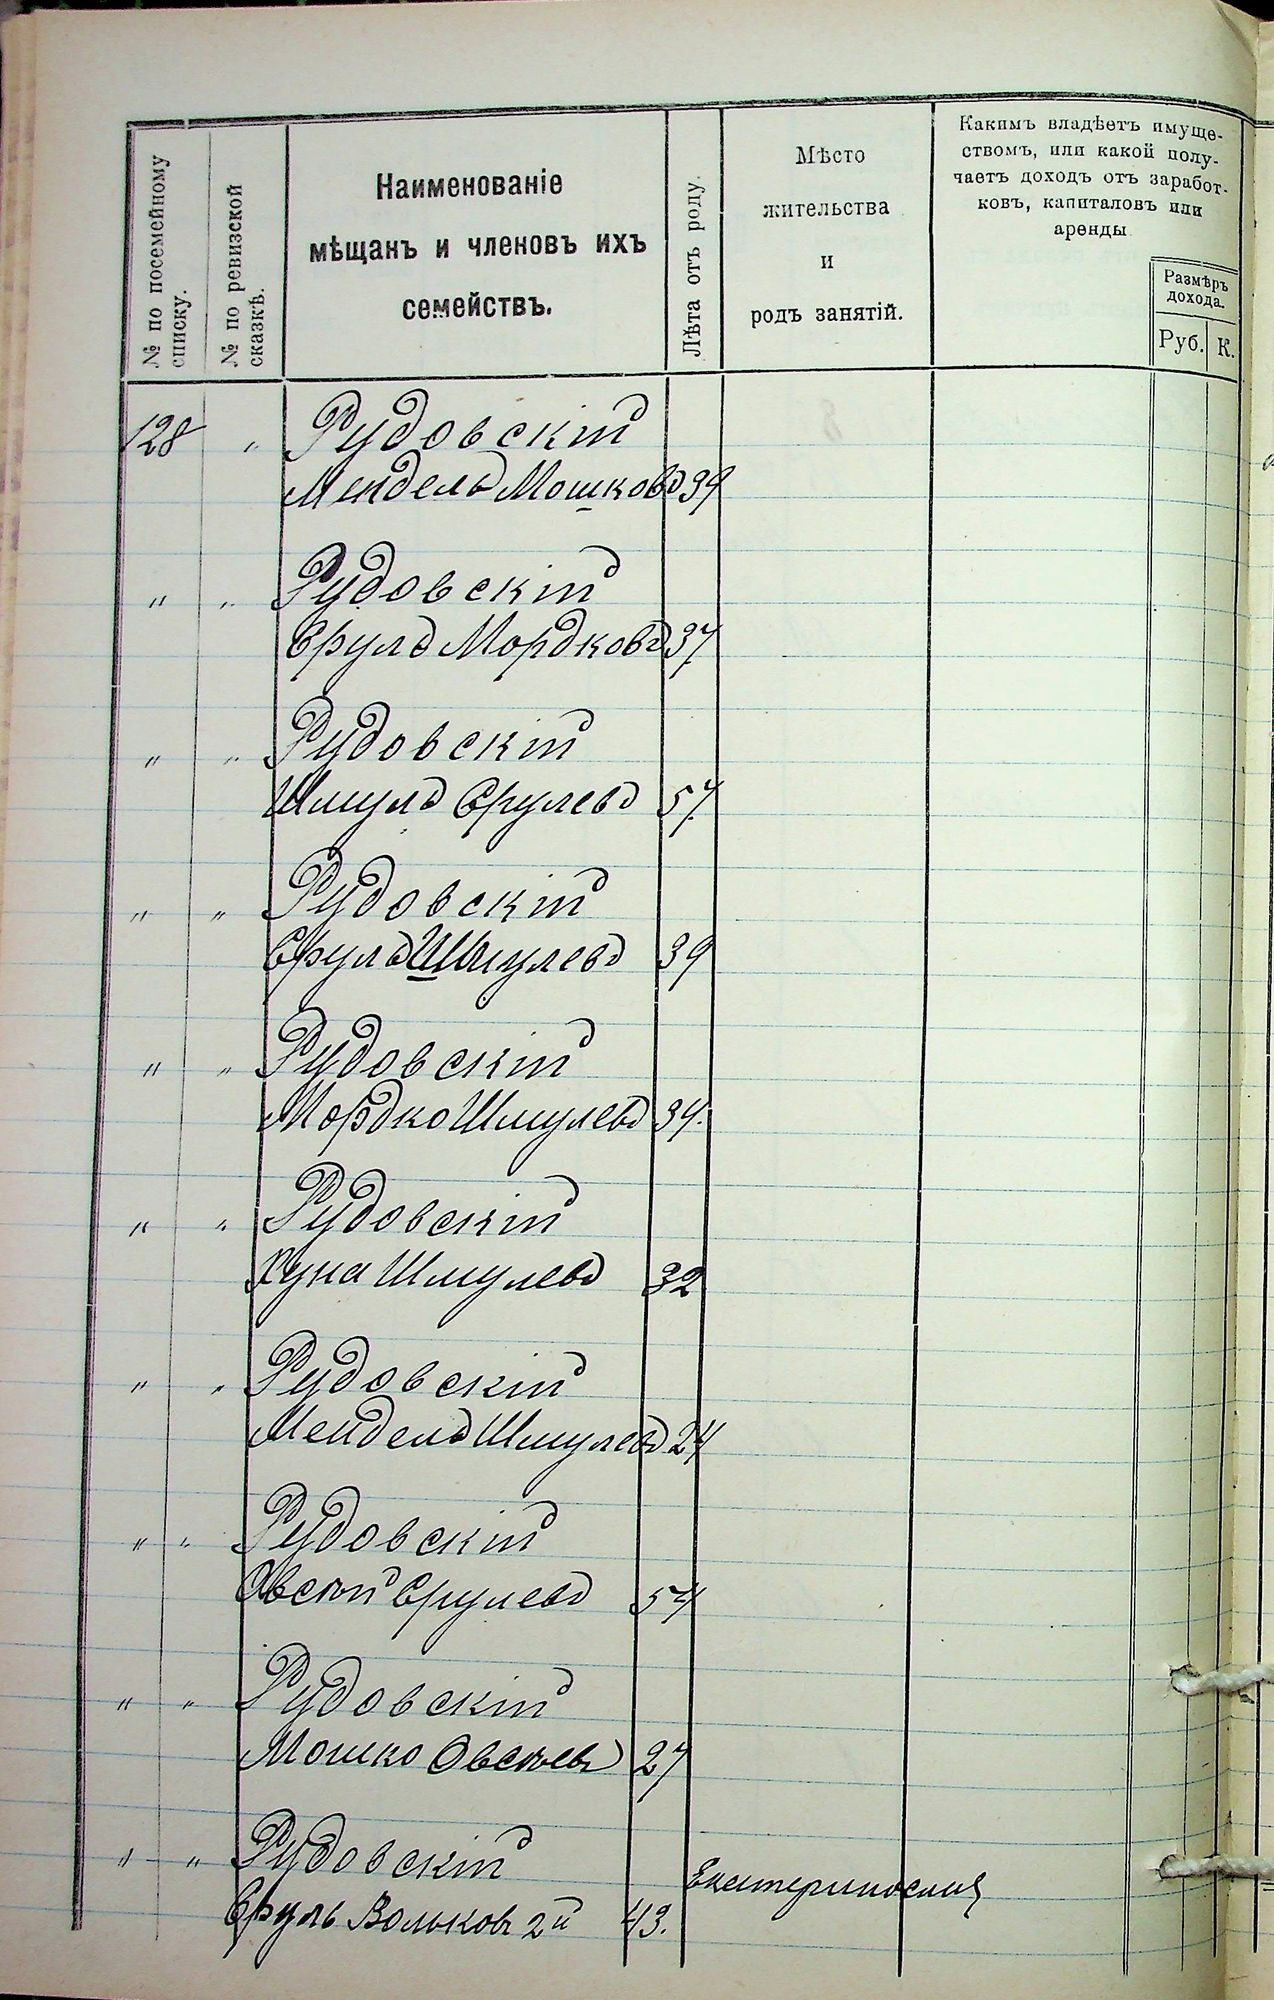 № по посемейному
списку.
№ по ревизской
сказкѣ.
Наименованіе
мѣщанъ и членовъ ихъ
семействъ.
Лѣта отъ роду.
Мѣсто
жительства
и
родъ занятій.
Какимъ владѣетъ имуще-
ствомъ, или какой полу-
чаетъ доходъ отъ заработ-
ковъ, капиталовъ или
аренды
Размѣръ
дохода.
Руб. К.
128 " Рудовскій
Мендель Мошковъ 39
" " Рудовскій
Сруль Мордковъ 37
" " Рудовскій
Шмуль Срулевъ 57
" " Рудовскій
Сруль Шмулевъ 39
" " Рудовскій
Мордко Шмулевъ 34.
" " Рудовскій
Хуна Шмулевъ 32
" " Рудовскій
Мендель Шмулевъ 24
" " Рудовскій
Овсѣй Срулевъ 54
" " Рудовскій
Мошко Овсѣевъ 27
" " Рудовскій
Сруль Вольковъ 2й 43. Екатеринослав